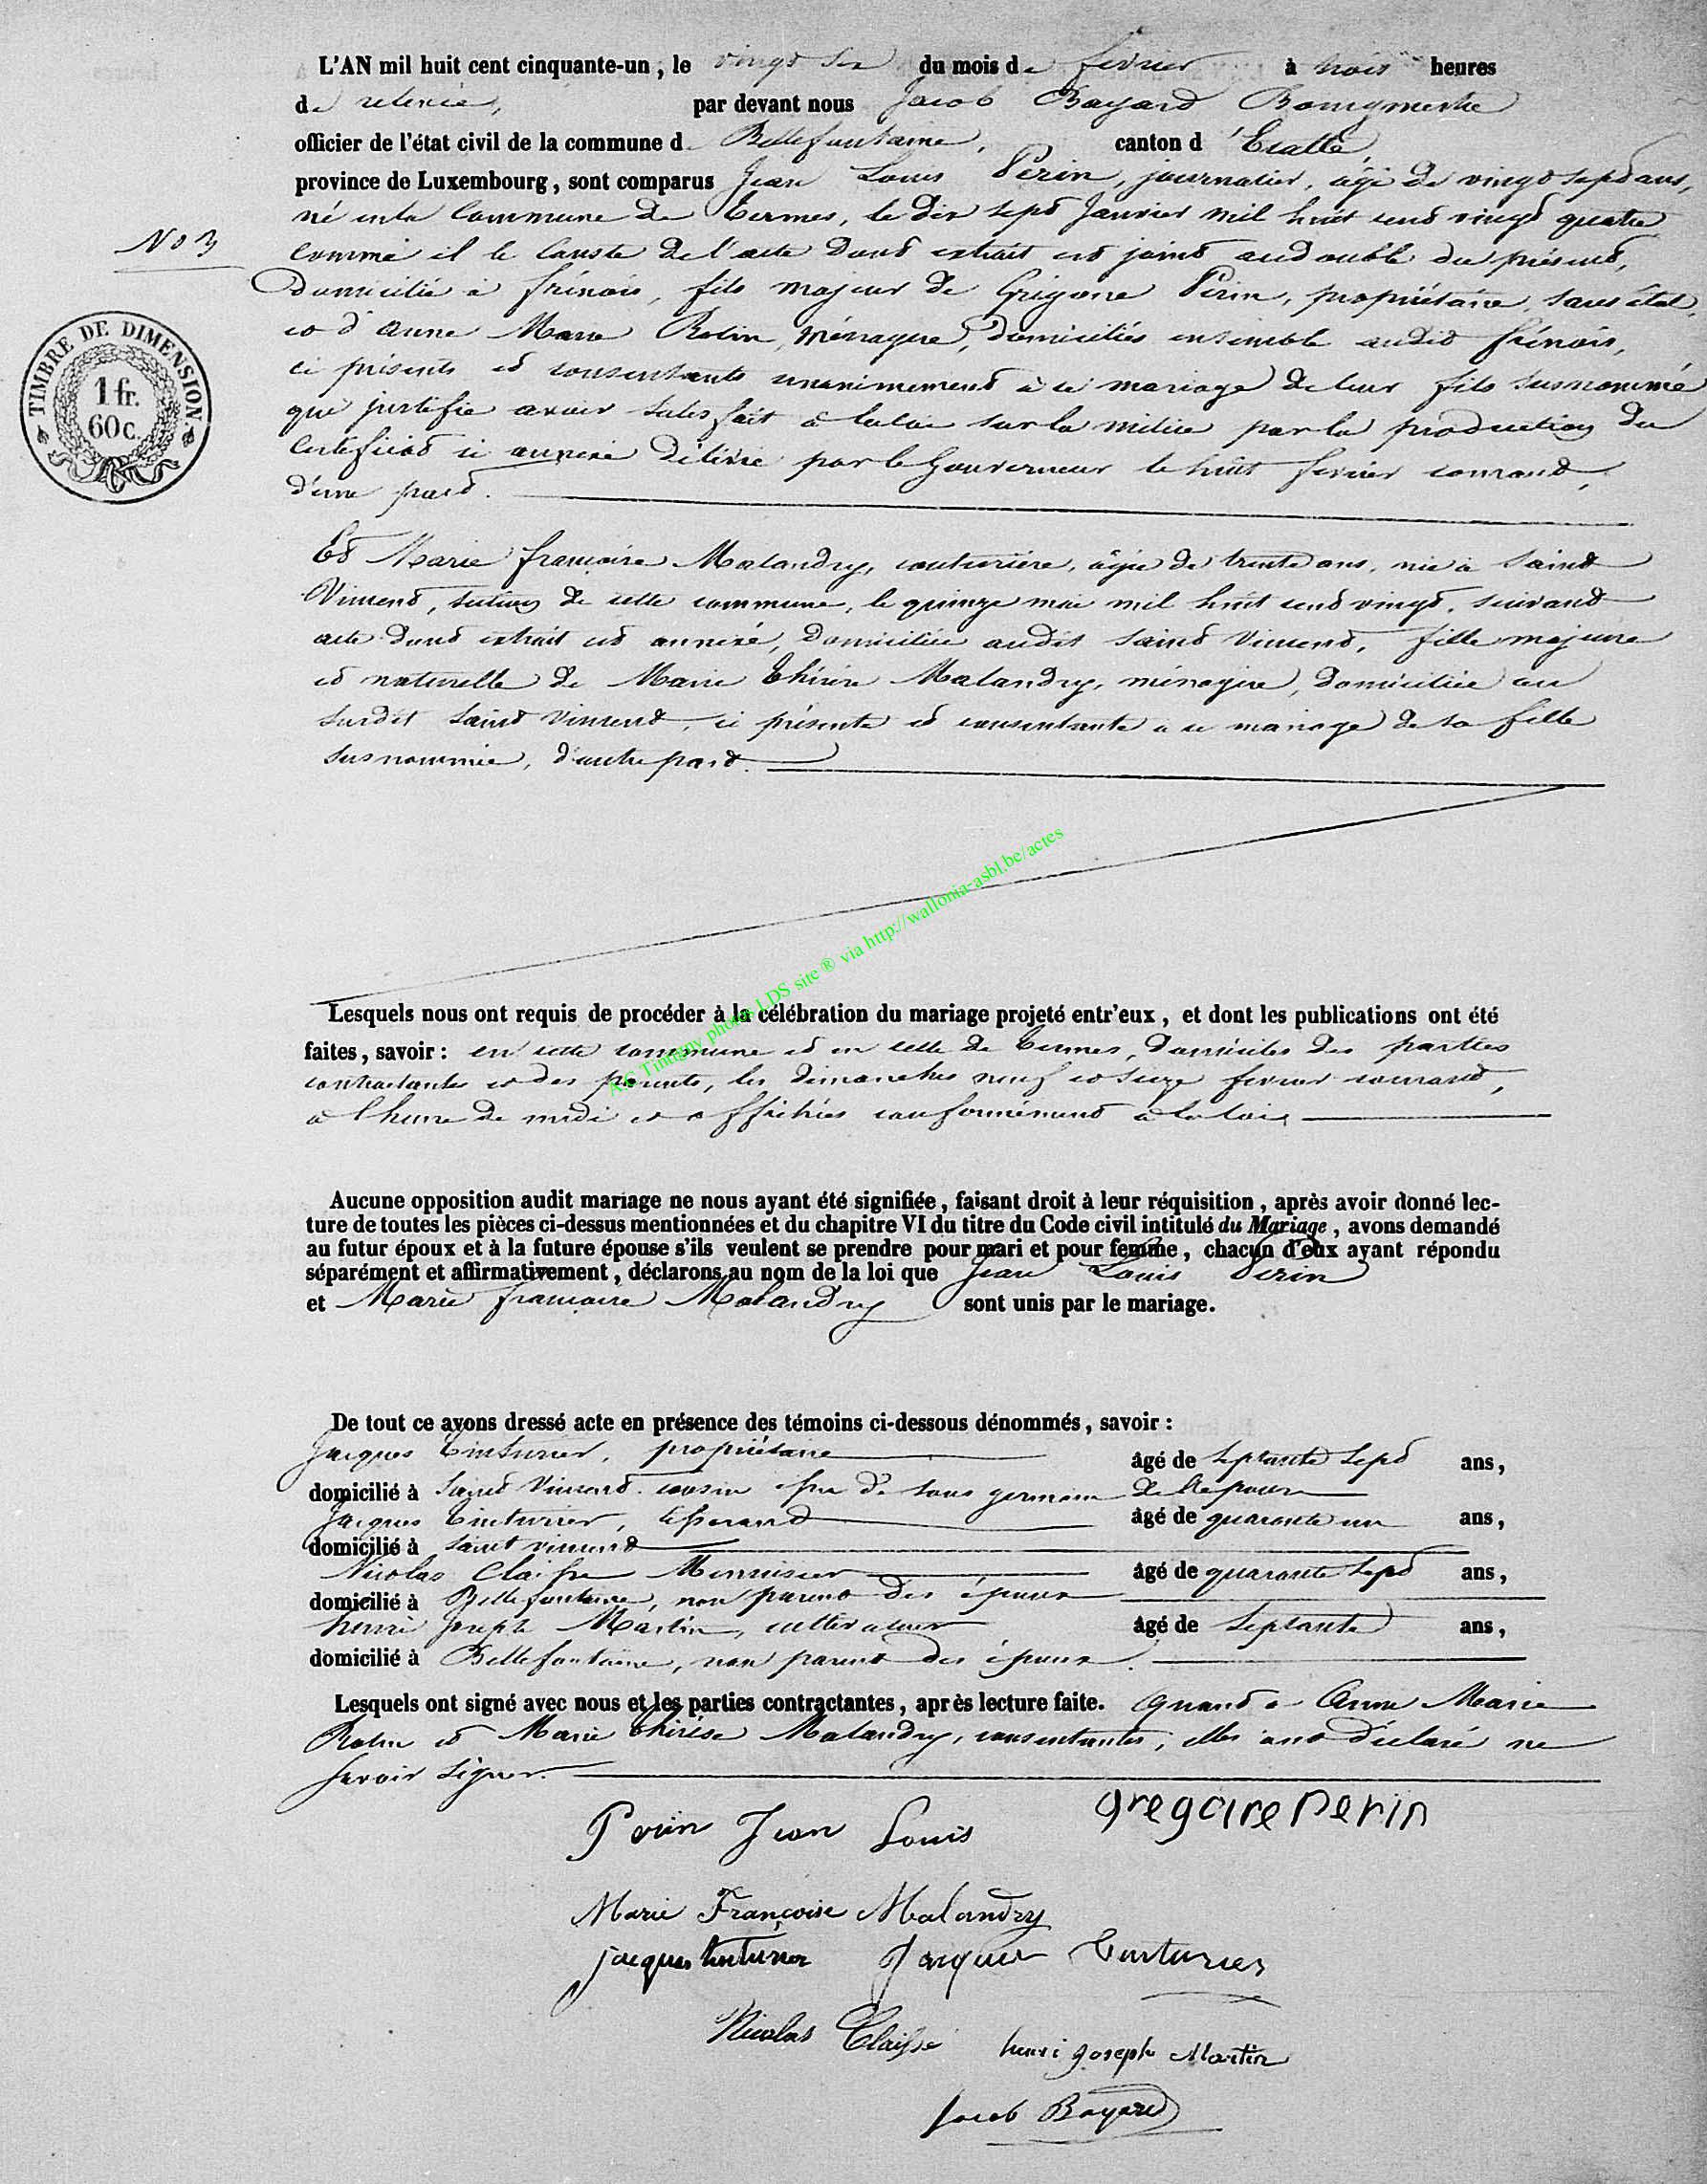 L'AN mil huit cent cinquante-un, le vingt six du mois de fevrier à trois heures
de relevée, par devant nous Jacob Bayard Bourgmestre
officier de l'état civil de la commune d Bellefontaine, canton d'Etalle,
province de Luxembourg, sont comparus Jean Louis Perin, journalier, âgé de vingt sept ans,
né en la commune de Termes, le dix sept Janvier mil huit cent vingt quatre
No 3
comme il le conste de l'acte dont extrait est joint au double du présent,
Domicilié à frénois, fils majeur de Grégoire Perin, propriétaire, sans état,
et d'anne Marie Robin, ménagere, domiciliés ensemble audit frénois,
TIMBRE DE DIMENSION.
1 fr.
60 c.
ci présents et consentants unanimement à ce mariage de leur fils susnommé
qui justifie avoir satisfait à la loi sur la milice par la production du
Certificat ci annexé délivré par le Gouverneur le huit fevrier courant,
d'une part.
Et Marie francoise Malandry, couturière, âgée de trente ans, née à Saint
Vincent, section de cette commune, le quinze mai mil huit cent vingt, suivant
acte dont extrait est annexé, Domiciliée audit Saint Vincent, fille majeure
et naturelle de Marie thérèse Malandry, ménagère, domiciliée au
susdit Saint Vincent, ci présente et consentante à ce mariage de sa fille
susnommée, d'autre part.
AC Tintigny photos LDS site ® via http://wallonia-asbl.be/actes
Lesquels nous ont requis de procéder à la célébration du mariage projeté entr'eux, et dont les publications ont été
faites, savoir: en cette commune et en celle de Termes, domiciles des parties
contractantes et des parents, les dimanches neuf et seize fevrier courant,
à l'heure de midi et affichées conformément à la loi,
Aucune opposition audit mariage ne nous ayant été signifiée, faisant droit à leur réquisition, après avoir donné lec-
ture de toutes les pièces ci-dessus mentionnées et du chapitre VI du titre du Code civil intitulé du Mariage, avons demandé
au futur époux et à la future épouse s'ils veulent se prendre pour mari et pour femme, chacun d'eux ayant répondu
séparément et affirmativement, déclarons au nom de la loi que Jean Louis Perin
et Marie francoise Malandry sont unis par le mariage.
De tout ce avons dressé acte en présence des témoins ci-dessous dénommés, savoir:
Jacques Tinturier, propriétaire âgé de septante sept ans,
domicilié à Saint Vincent, cousin sous germain de l'epouse
Jacques Tinturier, tisserand âgé de quarante un ans,
domicilié à saint vincent
Nicolas Claisse Menuisier âgé de quarante sept ans,
domicilié à Bellefontaine, non parent des époux
henri Joseph Martin, cultivateur âgé de septante ans,
domicilié à Bellefontaine, non parent des époux.
Lesquels ont signé avec nous et les parties contractantes, après lecture faite. Quant à Anne Marie
Robin et Marie thérèse Malandry, consentantes, elles ont déclaré ne
savoir signer.
gregoire Perin
Perin Jean Louis
Marie Françoise Malandry
jacques tinturier Jacques Tinturier
Nicolas Claisse henri joseph Martin
Jacob Bayard